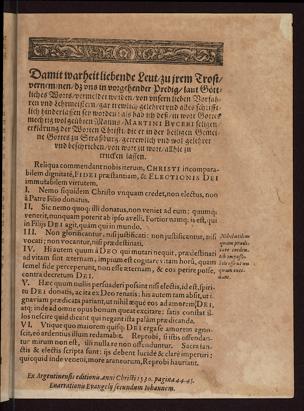 Damit warheit liebende Leut/ zu jrem Trost
vernemmen/ dz vns in vorgehender Predig/ laut Gött-
liches Worts/ vermeldet worden/ von vnsern lieben Vorfah-
ren vnd Lehrmeistern/ gar trewlich gelehret vnd alles schrifft-
lich hinderlassen
MARTINI BVCERI seligen/
erklärung der Worten Christi, die er in der heiligen Gemei-
ne Gottes zu Straßburg, gelehret
vnd beschrieben, von wort zu wort, allhie
trucken lassen.
Reliqua commendant nobis iterum, CHRISTI incompara-
bilem dignitatē, FIDEI præstantiam, & ELECTIONIS DEI
immutabilem virtutem.
I. Nemo siquidem Christo vnquam credet, non electus, non
à Patre Filio donatus.
II. Sic nemo quoq; illi donatus, non veniet ad eum: quumq;
venerit, nunquam poterit ab ipso avelli. Fortior namq; is est, qui
in Filijs DEI agit, quàm qui in mundo.
III. Non glorificantur, nisi justificati: non justificantur, nisi
vocati; non vocantur, nisi prædestinati.
IV. Hi autem quum à DEO qui mutari nequit, prædestinati
ad vitam sint æternam, impium est cogitare: vitam hos, quam
semel fide perceperunt, non esse æternam, & eos perire posse,
contra decretum DEI.
V. Hæc quum nullis persuaderi possint nisi electis, id est, spiri-
tu DEI donatis, acita ex Deo renatis: his autem tam absit, ut
gnaviam prædicata pariant, ut nihil æquè eos ad amorem DEI,
atq; inde ad omne opus bonum queat excitare:
nescire quid dicant qui negant ista palàm prædicanda.
VI. Vtique quo maiorem quisq; DEI erga se amorem agnos-
cit, eò ardentius illum redamabit. Reprobi, si istis offendan-
tur mirum non est,
ctis & electis scripta sunt: ijs debent lucidè & clarè impertiri:
quicquid inde venire, more araneorum, Reprobi hauriant.
Ex Argentinensi editione anni Christi 1530. pagina 44.45.
Enarrationis Evangelij secundum Iohannem.